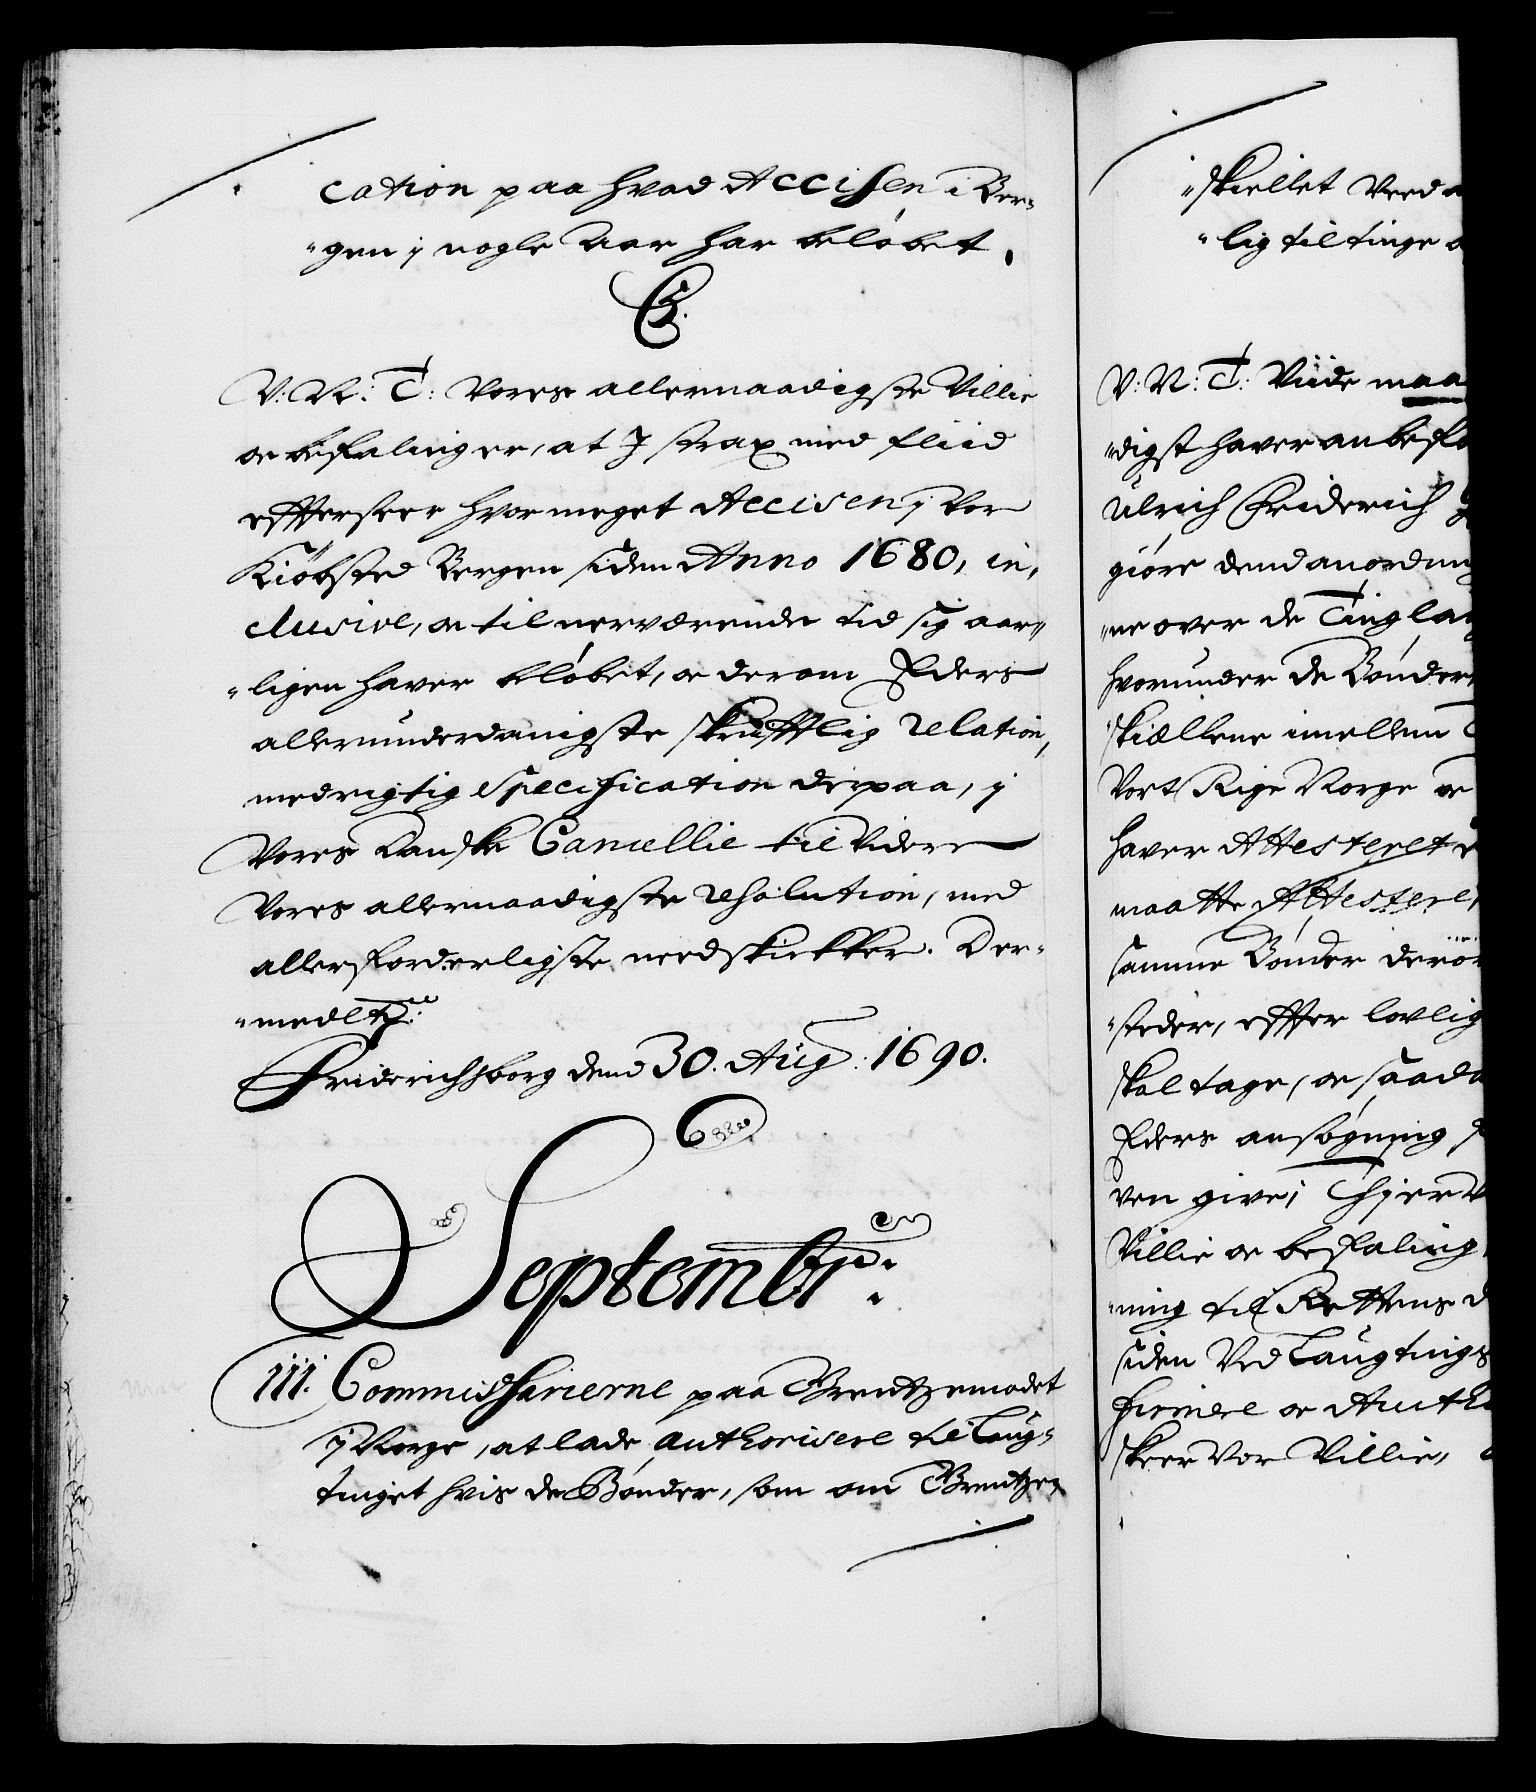 cation paa hvad Accisen i Ber-
"gen j nogle Aar har beløbet.
C5.
V: N: T: Vores allernaadigste Villie
oc befaling er, at J strax med fliid
effterseer hvormeget Accisen j vor
Kiøbsted Bergen siden Anno 1680, in-
clusive, oc til nerværende tid sig aar-
"ligen haver beløbet, oc derom Eders
allerunderdanigste skrifftlig relation,
med rigtig specification derpaa, j
Vores Danske Cancellie til videre
Vores allernaadigste resolution, med
allerforderligste needskikker. Der-
"med etc:
Friderichsborg dend 30. Aug: 1690.
Septembr:
111. Commissarierne paa Grentzemødet
j Norge, at lade authorisere til Laug-
tinget hvis de Bønder, som om Grentze-
"skiellet veed
"lig til tinge
V: N: T: Viide maa
"digst haver anbefa
Ulrich Friderich
giøre dend anordnin
"ne over de Tinglau
hvorunder de Bønder
skiællene imellem
Vort Rige Norge oc
haver Attesteret
maatte Attestere,
samme Bønder derøv
"steder, effter lovlig
skal tage, oc saada
Eders ansøgning
ven give; Thj er v
Villie oc befaling
"ning til Rettens
siden ved Laugtings
firmere oc Autho
skeer vor Villie,